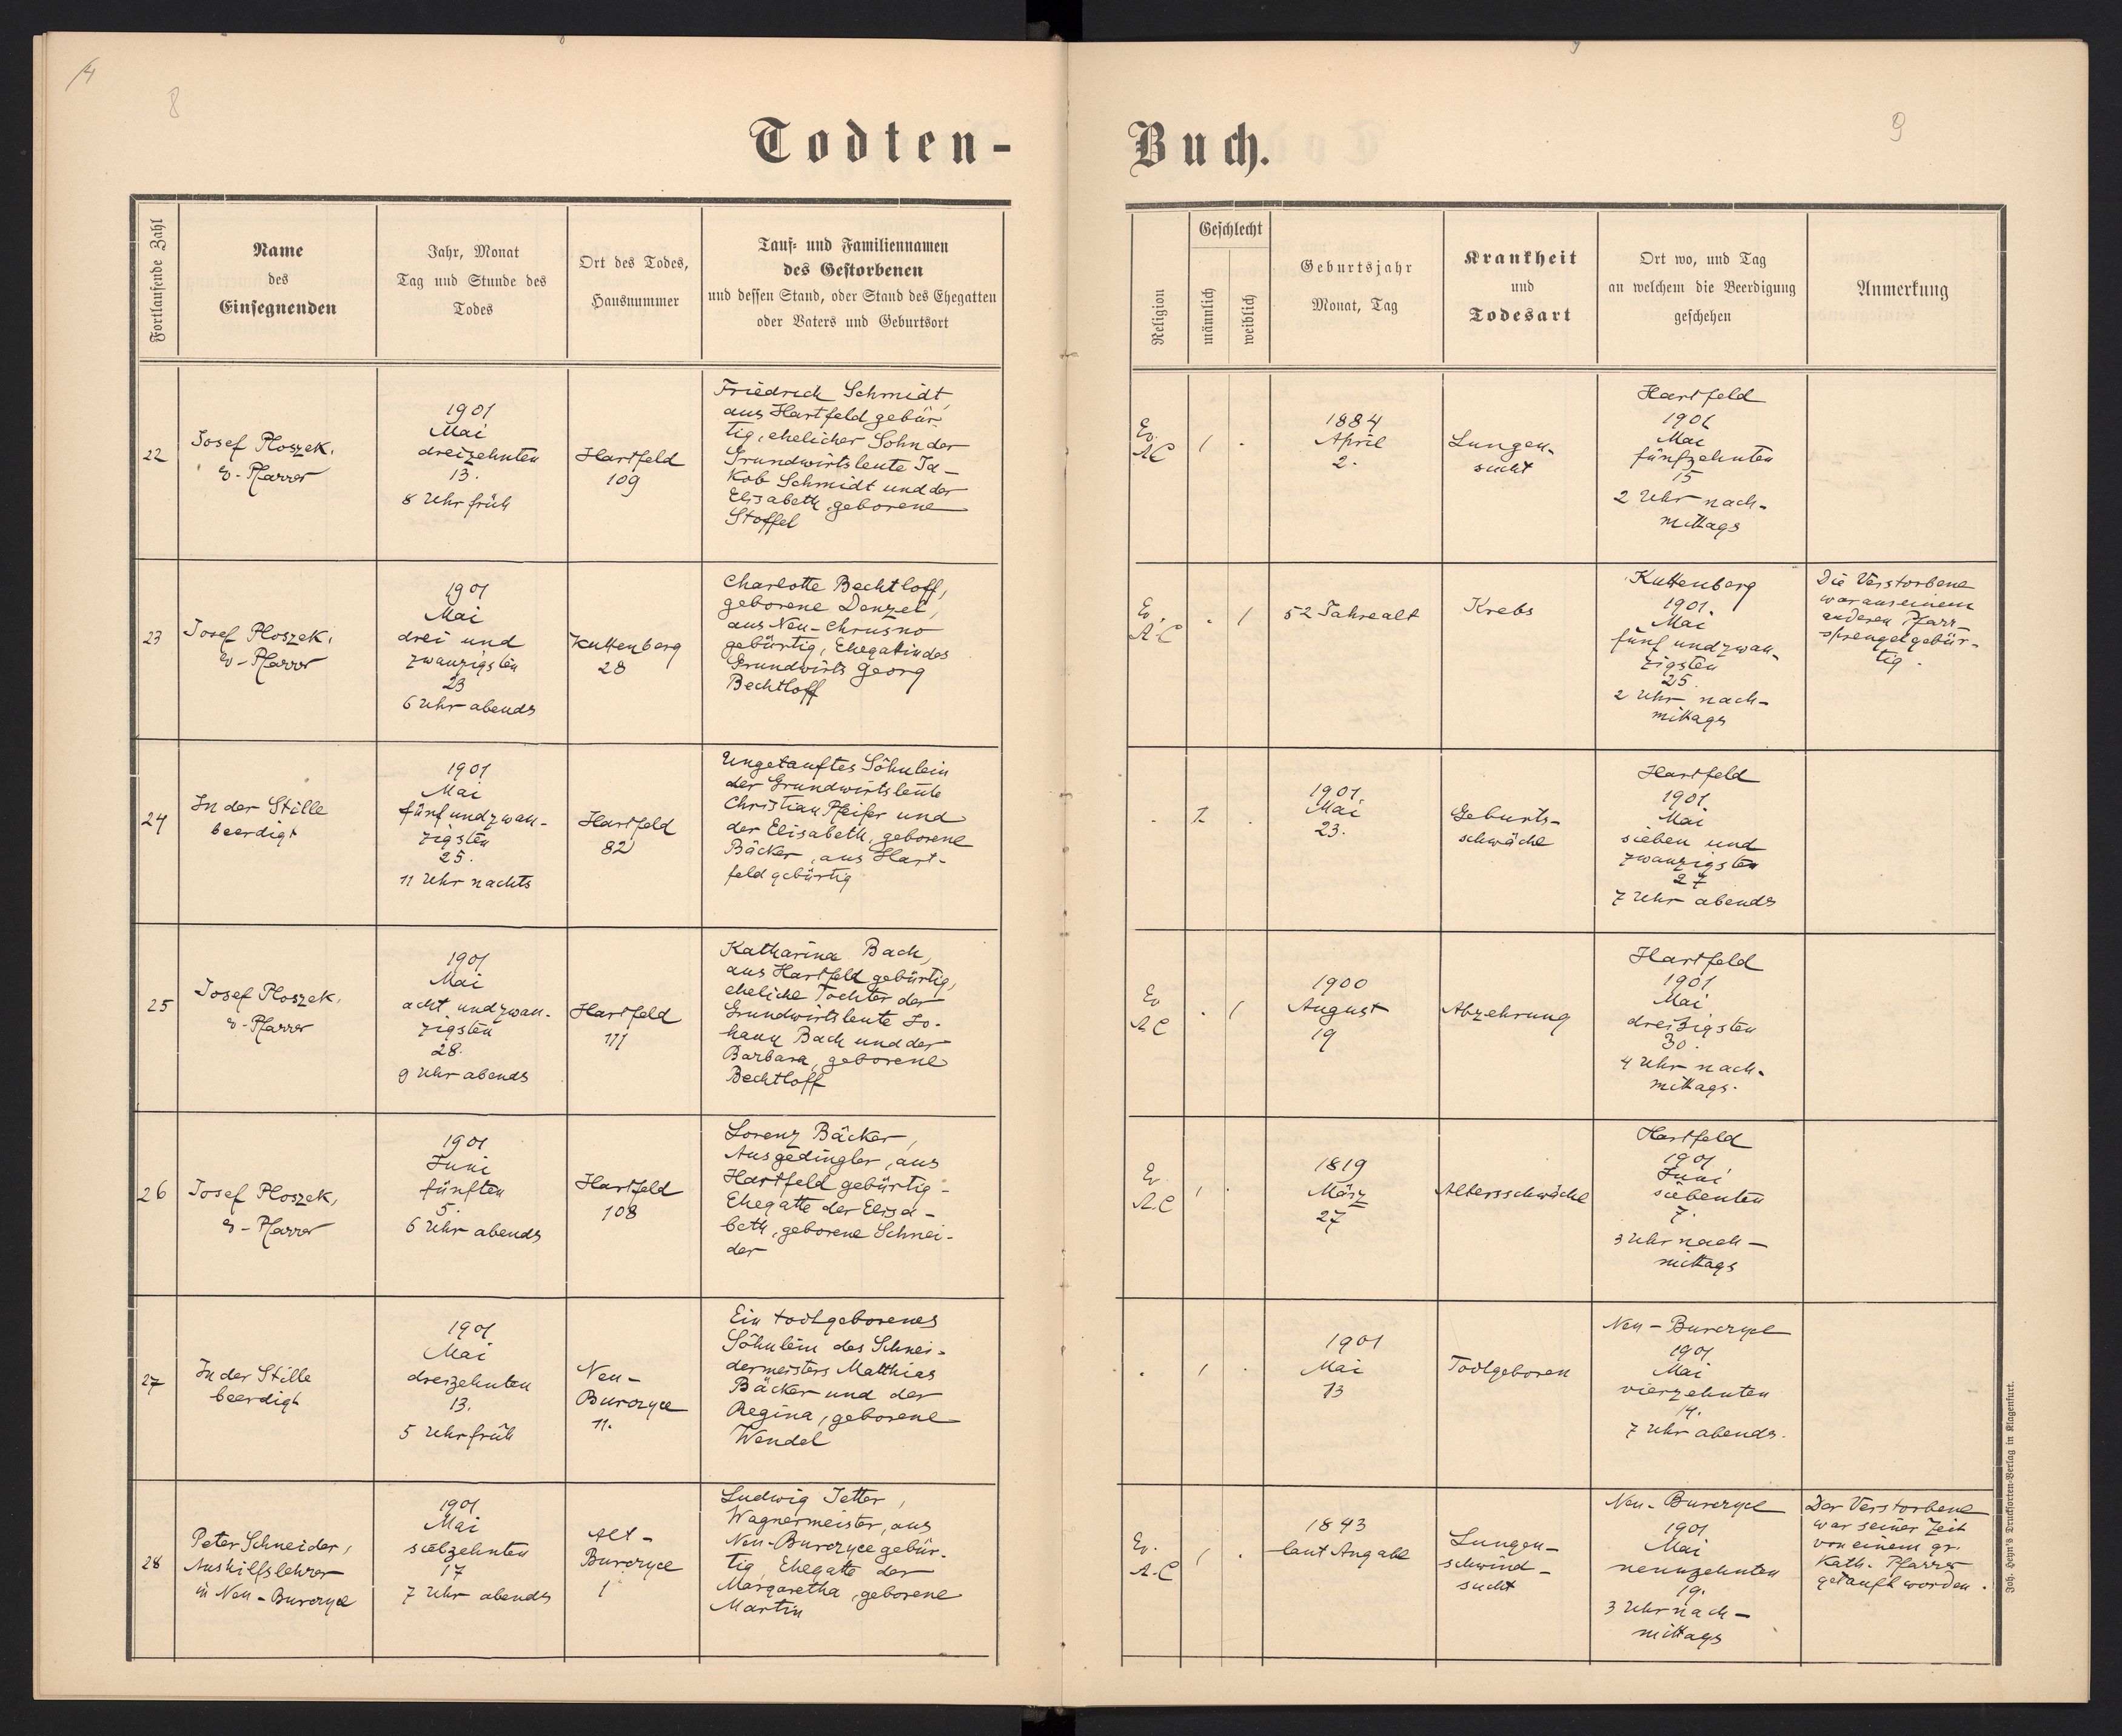 14
8
9
Todten-
Buch.
Fortlaufende Zahl
Name
des
Einsegnenden
Jahr, Monat
Tag und Stunde des
Todes
Ort des Todes,
Hausnummer
Tauf- und Familiennamen
des Gestorbenen
und dessen Stand, oder Stand des Ehegatten
oder Vaters und Geburtsort
Religion
Geschlecht
männlich
weiblich
Geburtsjahr
Monat, Tag
Krankheit
und
Todesart
Ort wo, und Tag
an welchem die Beerdigung
geschehen
Anmerkung
22
Josef Ploszek,
ev-Pfarrer
1901
Mai
dreizehnten
13.
8 Uhr früh
Hartfeld
109
Friedrich Schmidt,
aus Hartfeld gebür-
tig, ehelicher Sohn der
Grundwirtsleute Ja-
kob Schmidt und der
Elisabeth, geborene
Stoffel
Ev.
A.C
1 .
1884
April
2.
Lungen-
sucht
Hartfeld
1901
Mai
fünfzehnten
15
2 Uhr nach-
mittags
23
Josef Ploszek,
ev-Pfarrer
1901
Mai
drei und
zwanzigsten
23
6 Uhr abends
Kuttenberg
28
Charlotte Bechtloff,
geborene Denzel,
aus Neu-Chrusno
gebürtig, Ehegattin des
Grundwirts Georg
Bechtloff
Ev.
A.C
. 1
52 Jahre alt
Krebs
Kuttenberg
1901.
Mai
fünf und zwan-
zigsten
25.
2 Uhr nach-
mittags
Die Verstorbene
war aus einem
anderen Pfarr-
sprengel gebür-
tig.
24
In der Stille
beerdigt
1901
Mai
fünf und zwan-
zigsten
25.
11 Uhr nachts
Hartfeld
82
Ungetauftes Söhnlein
der Grundwirtsleute
Christian Pfeifer und
der Elisabeth, geborene
Bäcker, aus Hart-
feld gebürtig
. 1 .
1901.
Mai
23.
Geburts-
schwäche
Hartfeld
1901.
Mai
sieben und
zwanzigsten
27
7 Uhr abends
25
Josef Ploszek,
ev-Pfarrer
1901
Mai
acht und zwan-
zigsten
28.
9 Uhr abends
Hartfeld
111
Katharina Bach,
aus Hartfeld gebürtig,
eheliche Tochter der
Grundwirtsleute Jo-
hann Bach und der
Barbara, geborene
Bechtloff
Ev
A.C
. 1
1900
August
19
Abzehrung
Hartfeld
1901
Mai
dreißigsten
30.
4 Uhr nach-
mittags.
26
Josef Ploszek,
ev-Pfarrer
1901
Juni
fünften
5.
6 Uhr abends
Hartfeld
108
Lorenz Bäcker,
Ausgedingler, aus
Hartfeld gebürtig -
Ehegatte der Elisa-
beth, geborene Schnei-
der
Ev
A.C
1 .
1819
März
27
Altersschwäche
Hartfeld
1901
Juni
siebenten
7.
3 Uhr nach-
mittags
27
In der Stille
beerdigt
1901
Mai
dreizehnten
13.
5 Uhr früh
Neu-
Burczyce
11.
Ein todtgeborenes
Söhnlein des Schnei-
dermeisters Matthias
Bäcker und der
Regina, geborene
Wendel
. 1 .
1901
Mai
13
Todtgeboren
Neu-Burczyce
1901
Mai
vierzehnten
14.
7 Uhr abends.
28
Peter Schneider,
Aushilfslehrer
in Neu-Burczyce
1901
Mai
siebzehnten
17
7 Uhr abends
Alt-
Burczyce
1
Ludwig Jetter,
Wagnermeister, aus
Neu-Burczyce gebür-
tig, Ehegatte der
Margaretha, geborene
Martin
Ev.
A.C
1 .
1843
laut Angabe
Lungen-
schwind-
sucht
Neu-Burczyce
1901
Mai
neunzehnten
19.
3 Uhr nach-
mittags
Der Verstorbene
war seiner Zeit
von einem gr.
kath. Pfarrer
getauft worden.
Joh. Heyn's Drucksorten-Verlag in Klagenfurt.